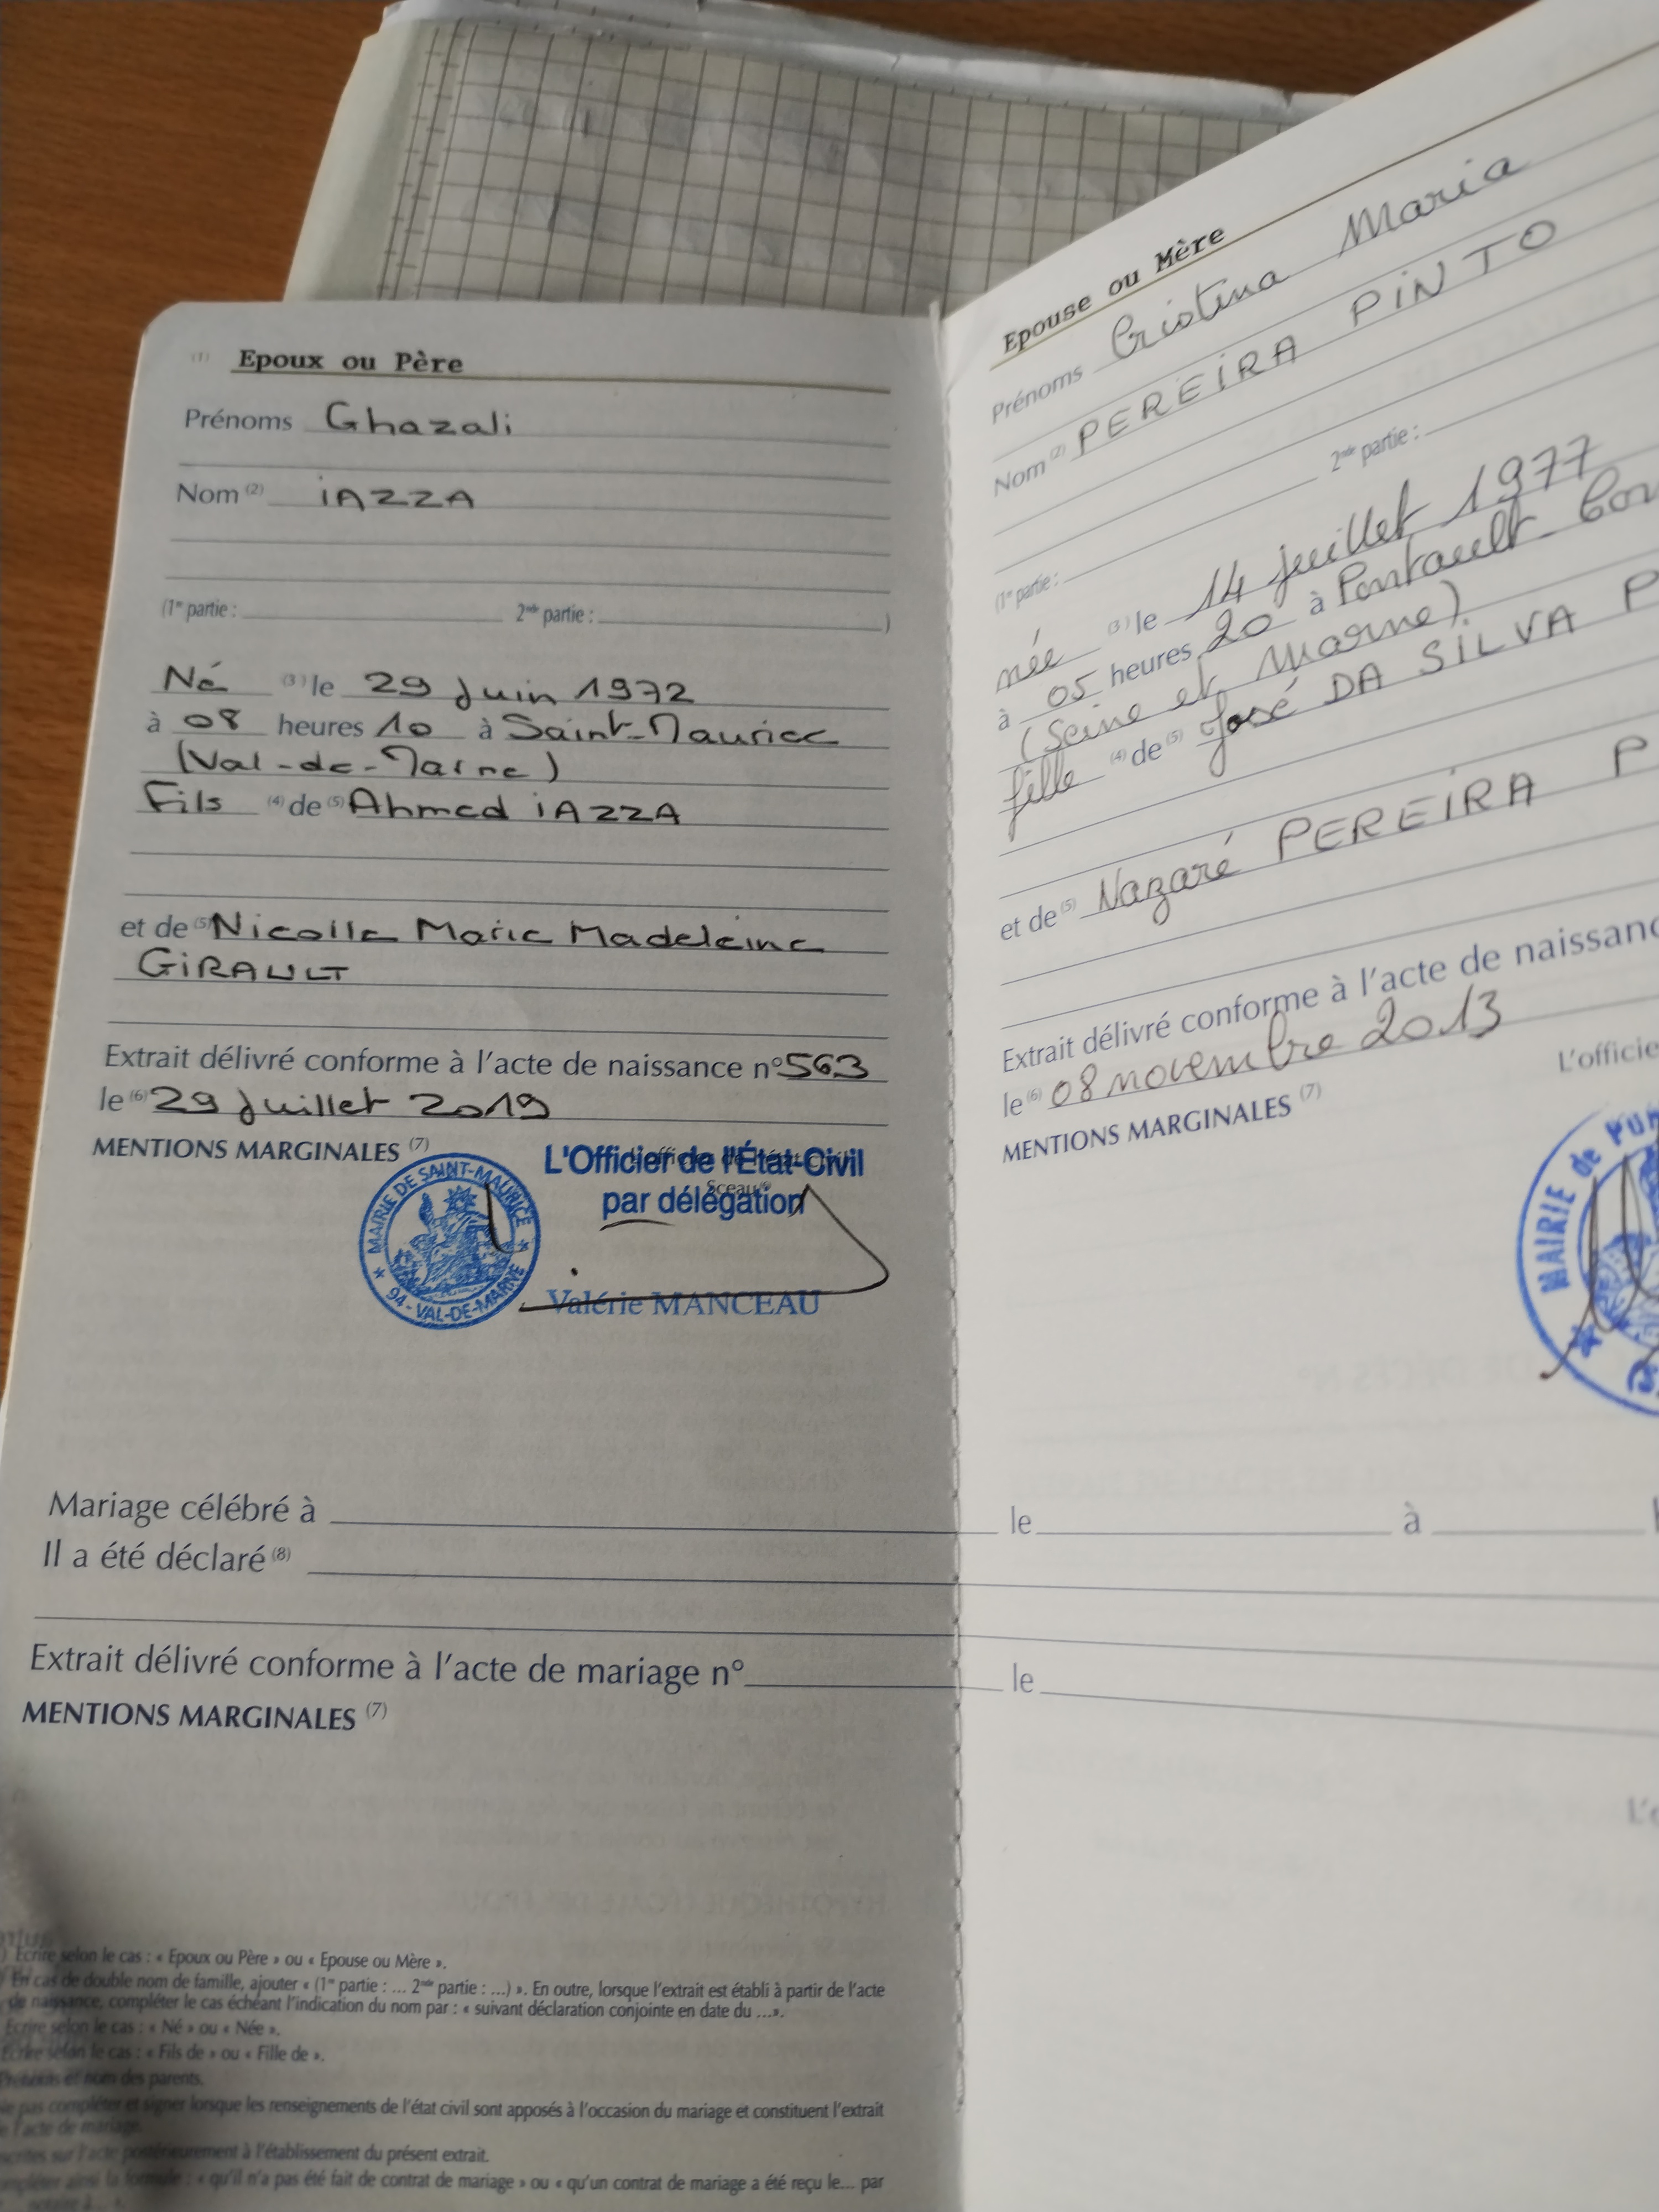 (1) Epoux ou Père
Prénoms Ghazali
Nom (2) iAZZA
(1re partie : 2nde partie : )
Né (3) le 29 Juin 1972
à 08 heures 10 à Saint-Maurice
(Val-de-Marne)
Fils (4) de (5) Ahmed iAZZA
et de (5) Nicolle Marie Madeleine
GiRAULT
Extrait délivré conforme à l'acte de naissance n° 563
le (6) 29 Juillet 2019
MENTIONS MARGINALES (7)
L'Officier de l'État-Civil
par délégation
Sceau
MAIRIE DE SAINT-MAURICE
94 - VAL-DE-MARNE
Valérie MANCEAU
Epouse ou Mère
Prénoms Cristina Maria
Nom (2) PEREiRA PiNTO
(1re partie : 2nde partie :
née (3) le 14 juillet 1977
à 05 heures 20 à Pontault-Com
(Seine et Marne)
fille (4) de (5) José DA SiLVA P
et de (5) Nazaré PEREiRA P
Extrait délivré conforme à l'acte de naissanc
le (6) 08 novembre 2013
MENTIONS MARGINALES (7)
L'officie
MAIRIE de
Mariage célébré à le à
Il a été déclaré (8)
Extrait délivré conforme à l'acte de mariage n° le
MENTIONS MARGINALES (7)
) Ecrire selon le cas : « Epoux ou Père » ou « Epouse ou Mère ».
) En cas de double nom de famille, ajouter « (1re partie : ... 2nde partie : ...) ». En outre, lorsque l'extrait est établi à partir de l'acte
de naissance, compléter le cas échéant l'indication du nom par : « suivant déclaration conjointe en date du ...».
Ecrire selon le cas : « Né » ou « Née ».
Ecrire selon le cas : « Fils de » ou « Fille de ».
Prénoms et nom des parents.
pas compléter et signer lorsque les renseignements de l'état civil sont apposés à l'occasion du mariage et constituent l'extrait
l'acte de mariage.
sur l'acte postérieurement à l'établissement du présent extrait.
ainsi la formule : « qu'il n'a pas été fait de contrat de mariage » ou « qu'un contrat de mariage a été reçu le... par
notaire à... ».